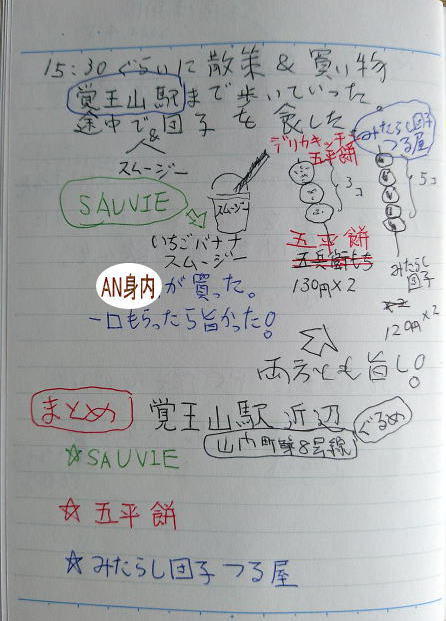 15:30ぐらいに散策&買い物
覚王山駅まで歩いていった
途中で団子を食した
&
スムージー
デリカキッチン
五平餅
みたらし団子
つる屋
SAUVIE
スムージー
3コ
5コ
いちごバナナ
スムージー
五平餅
五兵衛もち
130円×2
みたらし
団子
×2
120円×2
AN身内が買った。
一口もらったら旨かった!
両方とも旨し!
まとめ
覚王山駅近辺
ぐるめ
☆SAUVIE
☆五平餅
☆みたらし団子つる屋